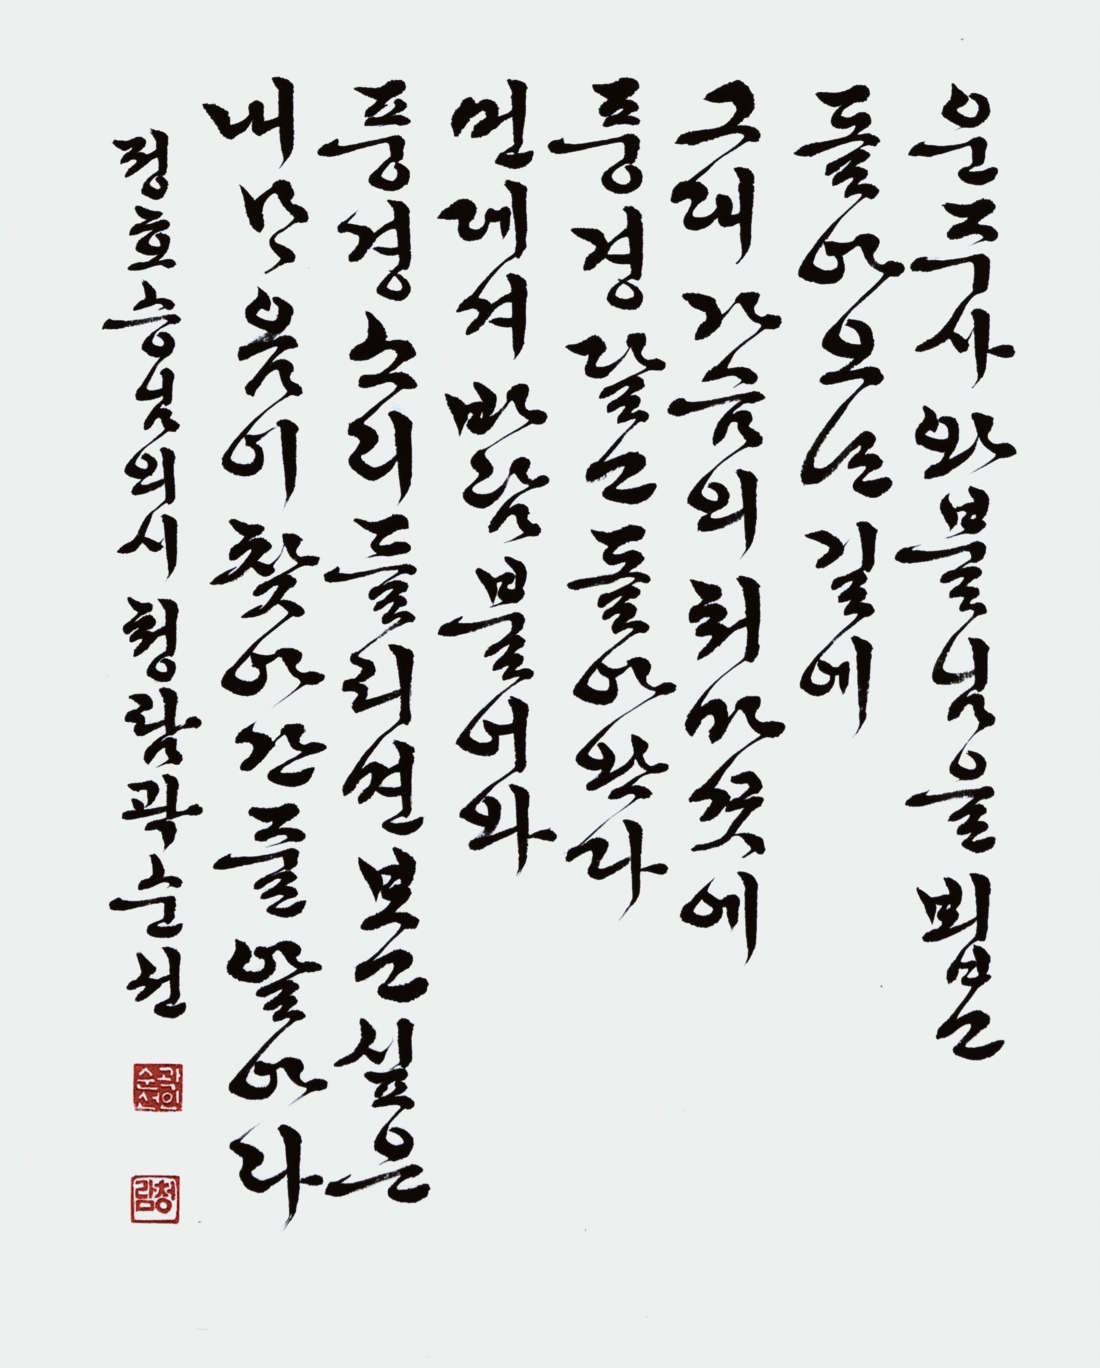 운주사 와불님을 뵙고
돌아오는 길에
그대 가슴의 처마 끝에
풍경 달고 돌아왔다
먼데서 바람 불어와
풍경소리 들리면 보고 싶은
내 마음이 찾아간 줄 알아라
정호승 님의 시 청람 곽순선
곽인순선
청람